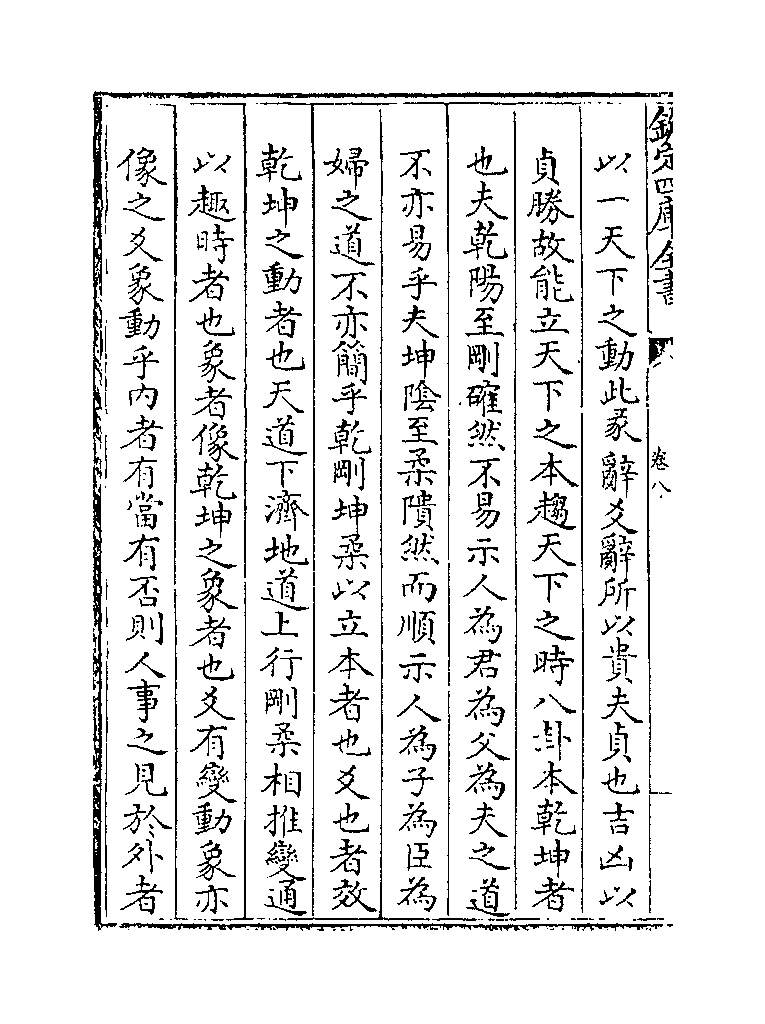 欽定四庫全書
卷八
以一天下之動此彖辭爻辭所以貴夫貞也吉凶以
貞勝故能立天下之本趨天下之時八卦本乾坤者
也夫乾陽至剛確然不易示人為君為父為夫之道
不亦易乎夫坤陰至柔隤然而順示人為子為臣為
婦之道不亦簡乎乾剛坤柔以立本者也爻也者效
乾坤之動者也天道下濟地道上行剛柔相推變通
以趣時者也象者像乾坤之象者也爻有變動象亦
像之爻象動乎内者有當有否則人事之見於外者